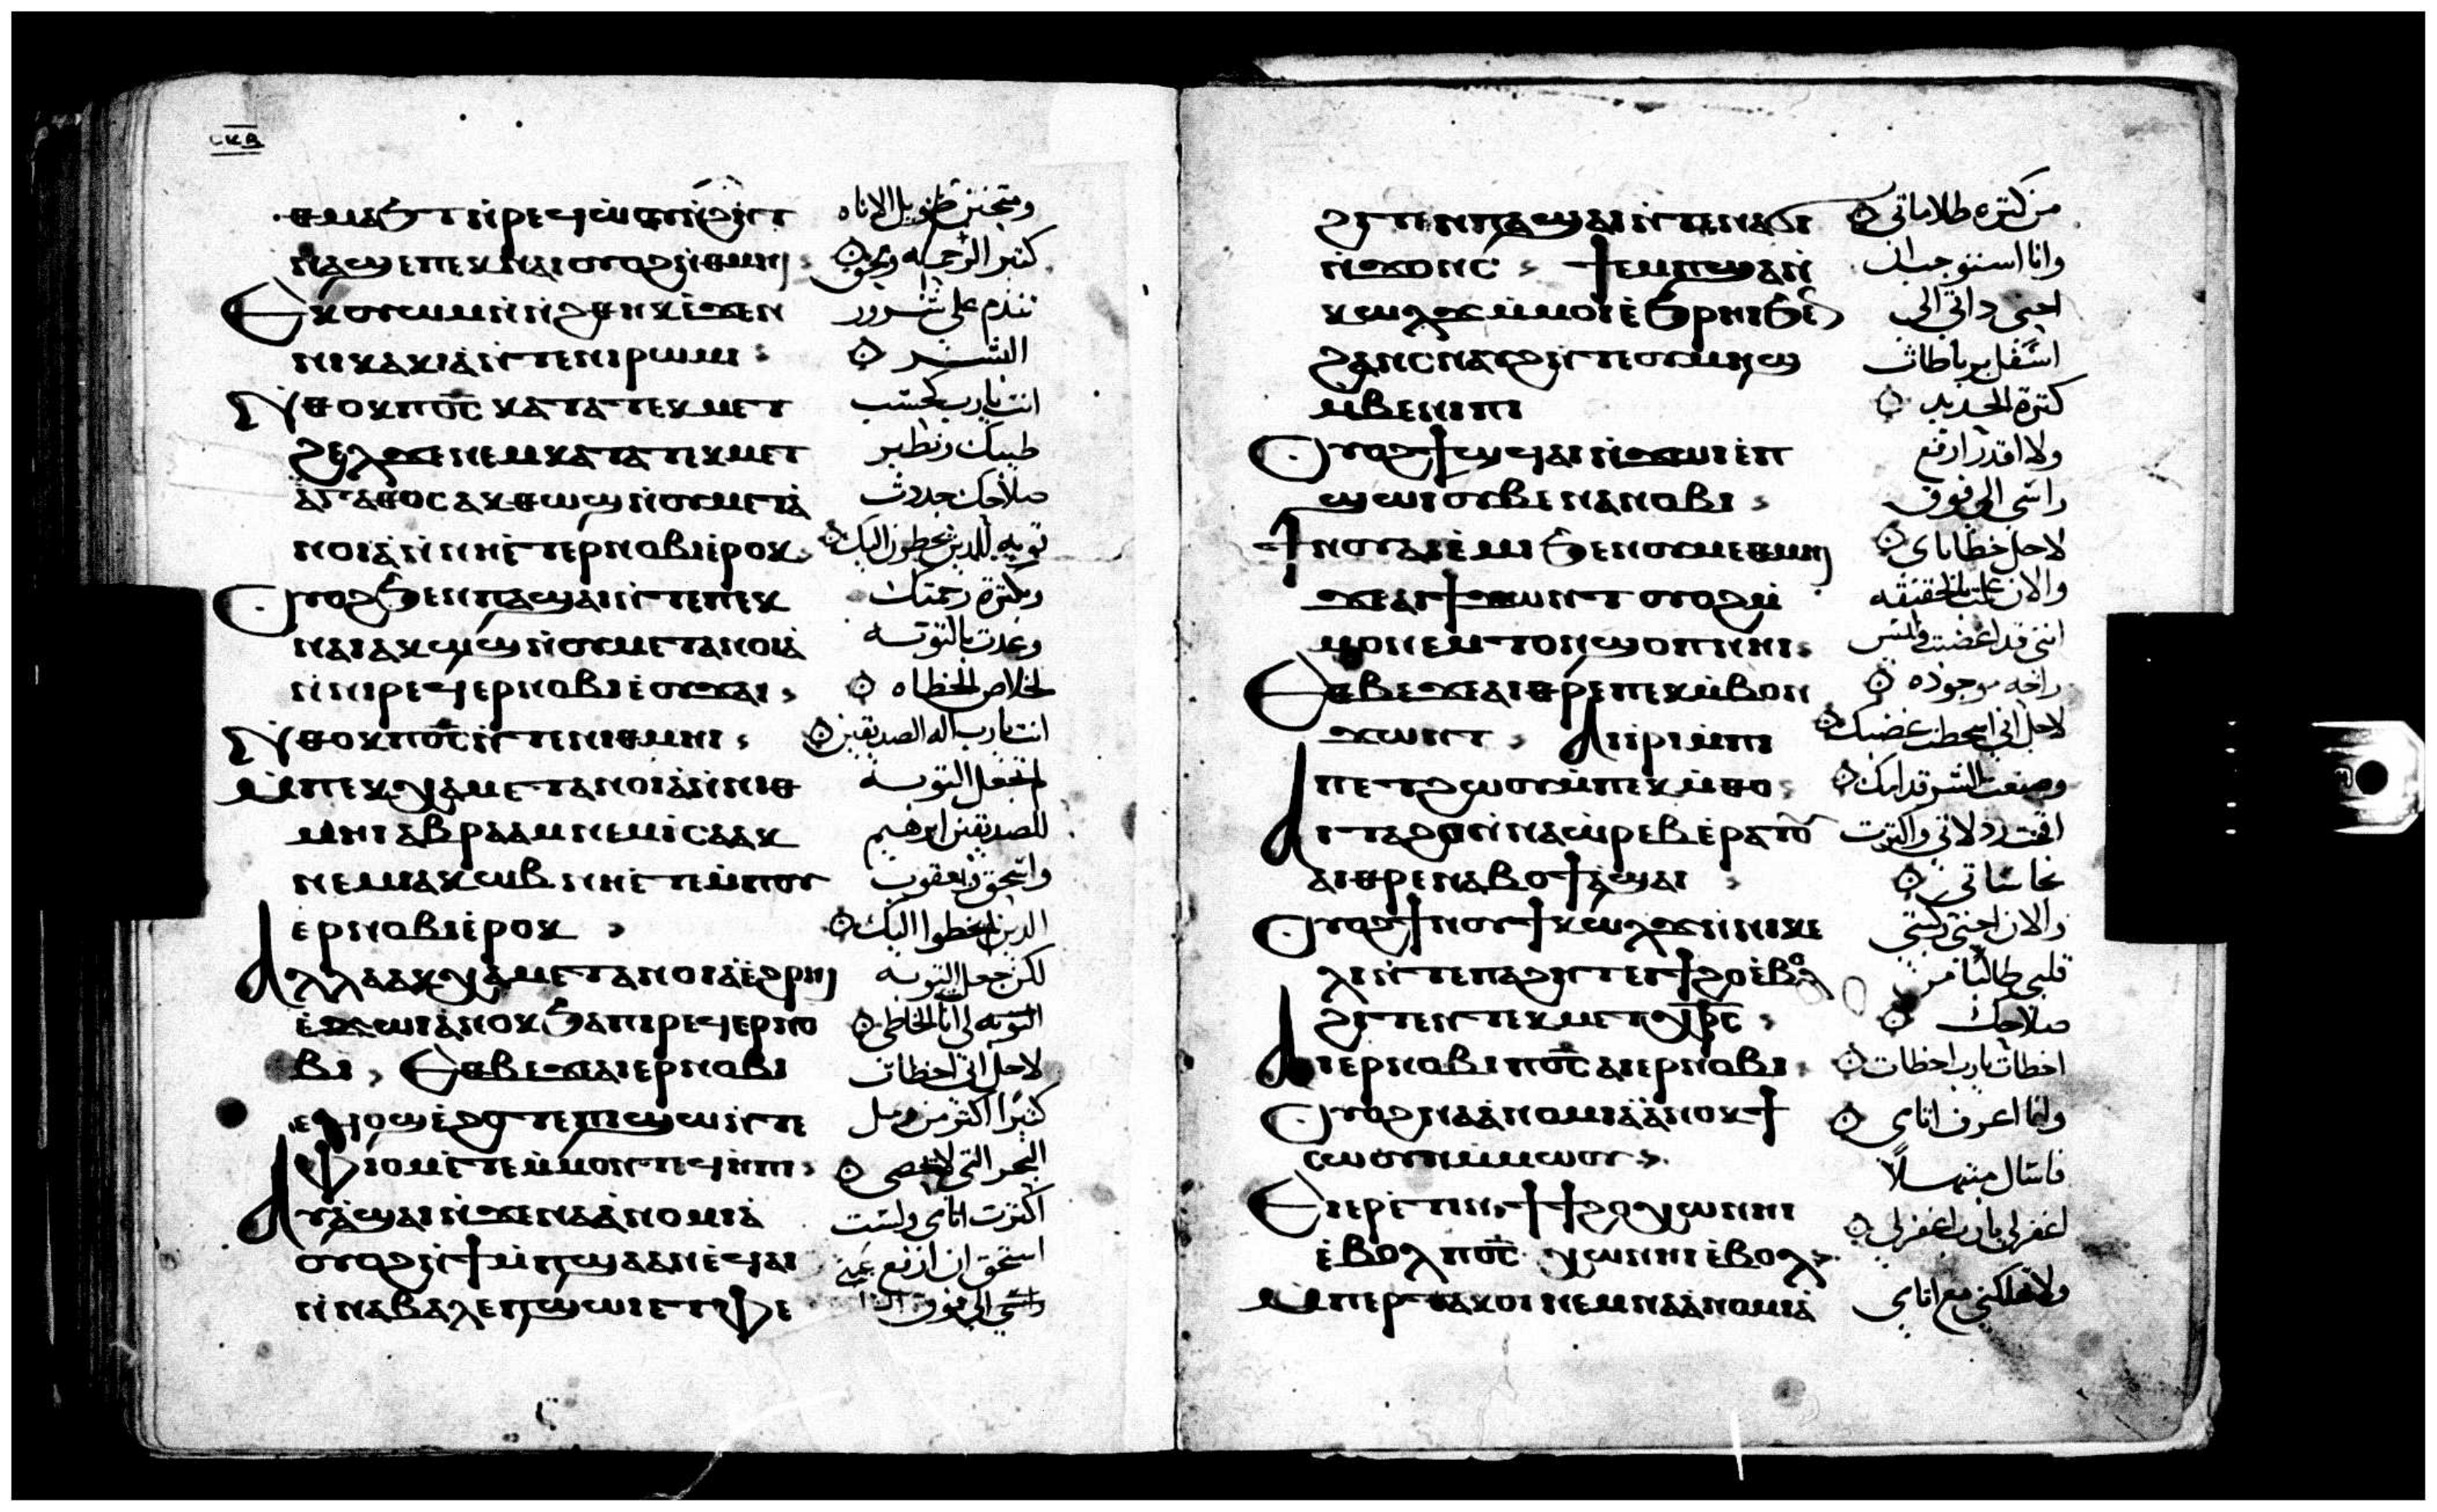 ⲥⲕⲃ
ⲑⲙⲁϧⲧ ⲛ̀ⲣⲉϥⲱⲟⲩⲛ̀ϩⲏⲧ
ⲛⲁϣⲉ ⲡⲉⲕⲛⲁⲓ ⲟⲩⲟϩ ⲛ̀ⲑⲙⲏⲓ
Ⲉⲕⲟⲩⲱⲙ ⲛ̀ϩⲑⲏⲕ ⲉ̀ϫⲉⲛ
ⲛⲓⲕⲁⲕⲓⲁ̀ ⲛ̀ⲧⲉ ⲛⲓⲣⲱⲙⲓ
Ⲛ̀ⲑⲟⲕ ⲡⲟ̅ⲥ̅ ⲕⲁⲧⲁ ⲧⲉⲕⲙⲉⲧ
ϩⲉⲗϫⲉ ⲛⲉⲙ ⲕⲁⲧⲁ ⲧⲉⲕⲙⲉⲧ
ⲁ̀ⲅⲁⲑⲟⲥ ⲁⲕⲑⲱϣ ⲛ̀ⲟⲩⲙⲉⲧⲁ̀
ⲛⲟⲓⲁ̀ ⲛ̀ⲛⲏⲉ̀ⲧⲉⲣⲛⲟⲃⲓ ⲉ̀ⲣⲟⲕ
Ⲟⲩⲟϩ ϧⲉⲛ ⲡⲁϣⲁⲓ ⲛ̀ⲧⲉ ⲡⲉⲕ
ⲛⲁⲓ ⲁⲕⲱϣ ⲛ̀ⲟⲩⲙⲉⲧⲁⲛⲟⲓⲁ̀
ⲛ̀ⲛⲓⲣⲉϥⲉⲣⲛⲟⲃⲓ ⲉ̀ⲟⲩϫⲁⲓ
Ⲛ̀ⲑⲟⲕ ⲡⲟ̅ⲥ̅ ⲛ̀ⲧⲉ ⲛⲓⲑⲙⲏⲓ
Ⲙ̀ⲡⲉⲕⲭⲁ ⲙⲉⲧⲁⲛⲟⲓⲁ̀ ⲛ̀ⲛⲓⲑ
ⲙⲏⲓ ⲁⲃⲣⲁⲁⲙ ⲛⲉⲙ ⲓⲥⲁⲁⲕ
ⲛⲉⲙ ⲓⲁⲕⲱⲃ ⲛⲏⲉ̀ⲧⲉⲙ̀ⲡⲟⲩ
ⲉⲣⲛⲟⲃⲓ ⲉ̀ⲣⲟⲕ
Ⲁⲗⲗⲁ ⲁⲕⲭⲁ ⲙⲉⲧⲁⲛⲟⲓⲁ̀ ⲉ̀ϩⲣⲏⲓ
ⲉ̀ϫⲱⲓ ⲁ̀ⲛⲟⲕ ϧⲁ ⲡⲓⲣⲉϥⲉⲣⲛⲟ
ⲃⲓ Ⲉⲑⲃⲉ ϫⲉ ⲁⲓⲉⲣⲛⲟⲃⲓ
ⲉϥⲟϣ ⲉ̀ϩⲟⲧⲉ ⲡⲓϣⲱ ⲛ̀ⲧⲉ
ⲫⲓⲟⲙ ⲉ̀ⲧⲉⲙ̀ⲙⲟⲛⲧⲉϥ ⲏⲡⲓ
Ⲁⲩⲁ̀ϣⲁⲓ ⲛ̀ϫⲉ ⲛⲁⲁ̀ⲛⲟⲙⲓⲁ̀
ⲟⲩⲟϩ ⲛ̀ϯⲙ̀ⲡϣⲁ ⲁⲛ ⲉ̀ϥⲁⲓ
ⲛ̀ⲛⲁⲃⲁⲗ ⲉⲡϣⲱⲓ ⲉⲧⲫⲉ
ومتحنن طويل الاناه
كثير الرحمه ومحق
تندم على شرور
البشر
انت يارب كحسب
طيبك ونظير
صلاحك حددت
توبه للذين يخطون اليك
وبكثرة رحمتك
وعدت بالتوبه
لخلاص الخطاه
انت يارب اله الصديقين
لم تجعل التوبه
للصديقين ابرهيم
واسحق ويعقوب
الذين لم يخطوا اليك
لكن جعل التوبه
التوبه لى انا الخاطى
لاجل انى اخطات
كثيرا اكثر من رمل
البحر التى لا تحصى
اكثرت اثامى ولست
استحق ان ارفع عينى
ϩⲓⲧⲉⲛ ⲡⲁϣⲁⲓ ⲛ̀ⲧⲉ ⲛⲁϭⲓ
ⲛ̀ϫⲟⲛⲥ ϯⲉⲙⲡϣⲁ ⲛ̀
ⲕⲱⲗϫ ⲙ̀ⲙⲟⲓ ⲉ̀ϧⲣⲏⲓ ϧⲉⲛ
ϩⲁⲛⲥⲛⲁⲩϩ ⲛ̀ⲧⲉ ⲟⲩⲙⲏϣ
ⲙ̀ⲃⲉⲛⲓⲡⲓ
Ⲟⲩⲟϩ ϯϣϥⲁⲓ ⲛ̀ϫⲱⲓ ⲉ̀ⲡ
ϣⲱⲓ ⲟⲩⲃⲉ ⲛⲁⲛⲟⲃⲓ
Ϯⲛⲟⲩ ⲁⲓⲉ̀ⲙⲓ ϧⲉⲛ ⲟⲩⲙⲉⲑⲙⲏⲓ
ϫⲉ ⲁⲓϯϫⲱⲛⲧ ⲟⲩⲟϩ ⲙ̀
ⲙⲟⲛ ⲉⲙⲧⲟⲛ ϣⲟⲡ ⲛⲏⲓ
Ⲉⲑⲃⲉ ϫⲉ ⲁⲓⲑⲣⲉ ⲡⲉⲕⲙ̀ⲃⲟⲛ
ϫⲱⲛⲧ Ⲁⲓⲓ̀ⲣⲓ ⲙ̀ⲡⲓ
ⲡⲉⲧϩⲱⲟⲩ ⲙ̀ⲡⲉⲕⲙ̀ⲑⲟ
Ⲁⲓⲧⲁϩⲟ ⲛ̀ⲛⲁⲱ̀ⲣⲉⲃ ⲉ̀ⲣⲁⲧⲟⲩ
ⲁⲓⲑⲣⲉ ⲛⲁⲃⲟϯ ⲁ̀ϣⲁⲓ
Ⲟⲩⲟϩ ϯⲛⲟⲩ ϯⲕⲱⲗϫ ⲛ̀ⲛⲓⲕⲉ
ⲗⲓ ⲛ̀ⲧⲉ ⲡⲁϩⲏⲧ ⲉⲩϯϩⲟ ⲉ̀ⲃⲟⲗ
ϩⲓⲧⲉⲛ ⲧⲉⲕⲙⲉⲧⲭ̅ⲣ̅ⲥ̅
Ⲁⲓⲉⲣⲛⲟⲃⲓ ⲡⲟ̅ⲥ̅ ⲁⲓⲉⲣⲛⲟⲃⲓ
Ⲟⲩⲟϩ ⲛⲁⲁ̀ⲛⲟⲙⲓⲁ̀ ⲁ̀ⲛⲟⲕ ϯ
ⲥⲱⲟⲩⲛ ⲙⲙⲱⲟⲩ
Ⲉⲓⲉⲣⲉ̀ⲧⲓⲛ ϯϯϩⲟ ⲭⲱ ⲛⲏⲓ
ⲉ̀ⲃⲟⲗ ⲡⲟ̅ⲥ̅ ⲭⲱ ⲛⲏⲓ ⲉ̀ⲃⲟⲗ
Ⲙ̀ⲡⲉⲣⲧⲁⲕⲟⲓ ⲛⲉⲙ ⲛⲁⲁ̀ⲛⲟⲙⲓⲁ̀
من كثره ظلاماتى
وانا استوجب ان
احنى ذاتى الى
اسفل برباطات
كثرة الحديد
ولا اقدر ارفع
راسى الى فوق
لاجل خطاياى
والان علمت بالحقيقه
اننى قد اغضبت وليس
راحه موجوده
لاجل انى اسخطت غضبك
وصنعت الشر قدامك
اقمت رذلاتى واكثرت
نجاساتى
والان احنى ركبتى
قلبى طالبا من
صلاحك
اخطات يارب اخطات
وانا اعرف اثامى
فاسال مبتهلا
اغفر لى يارب اغفر لى
ولا تهلكنى مع اثامى